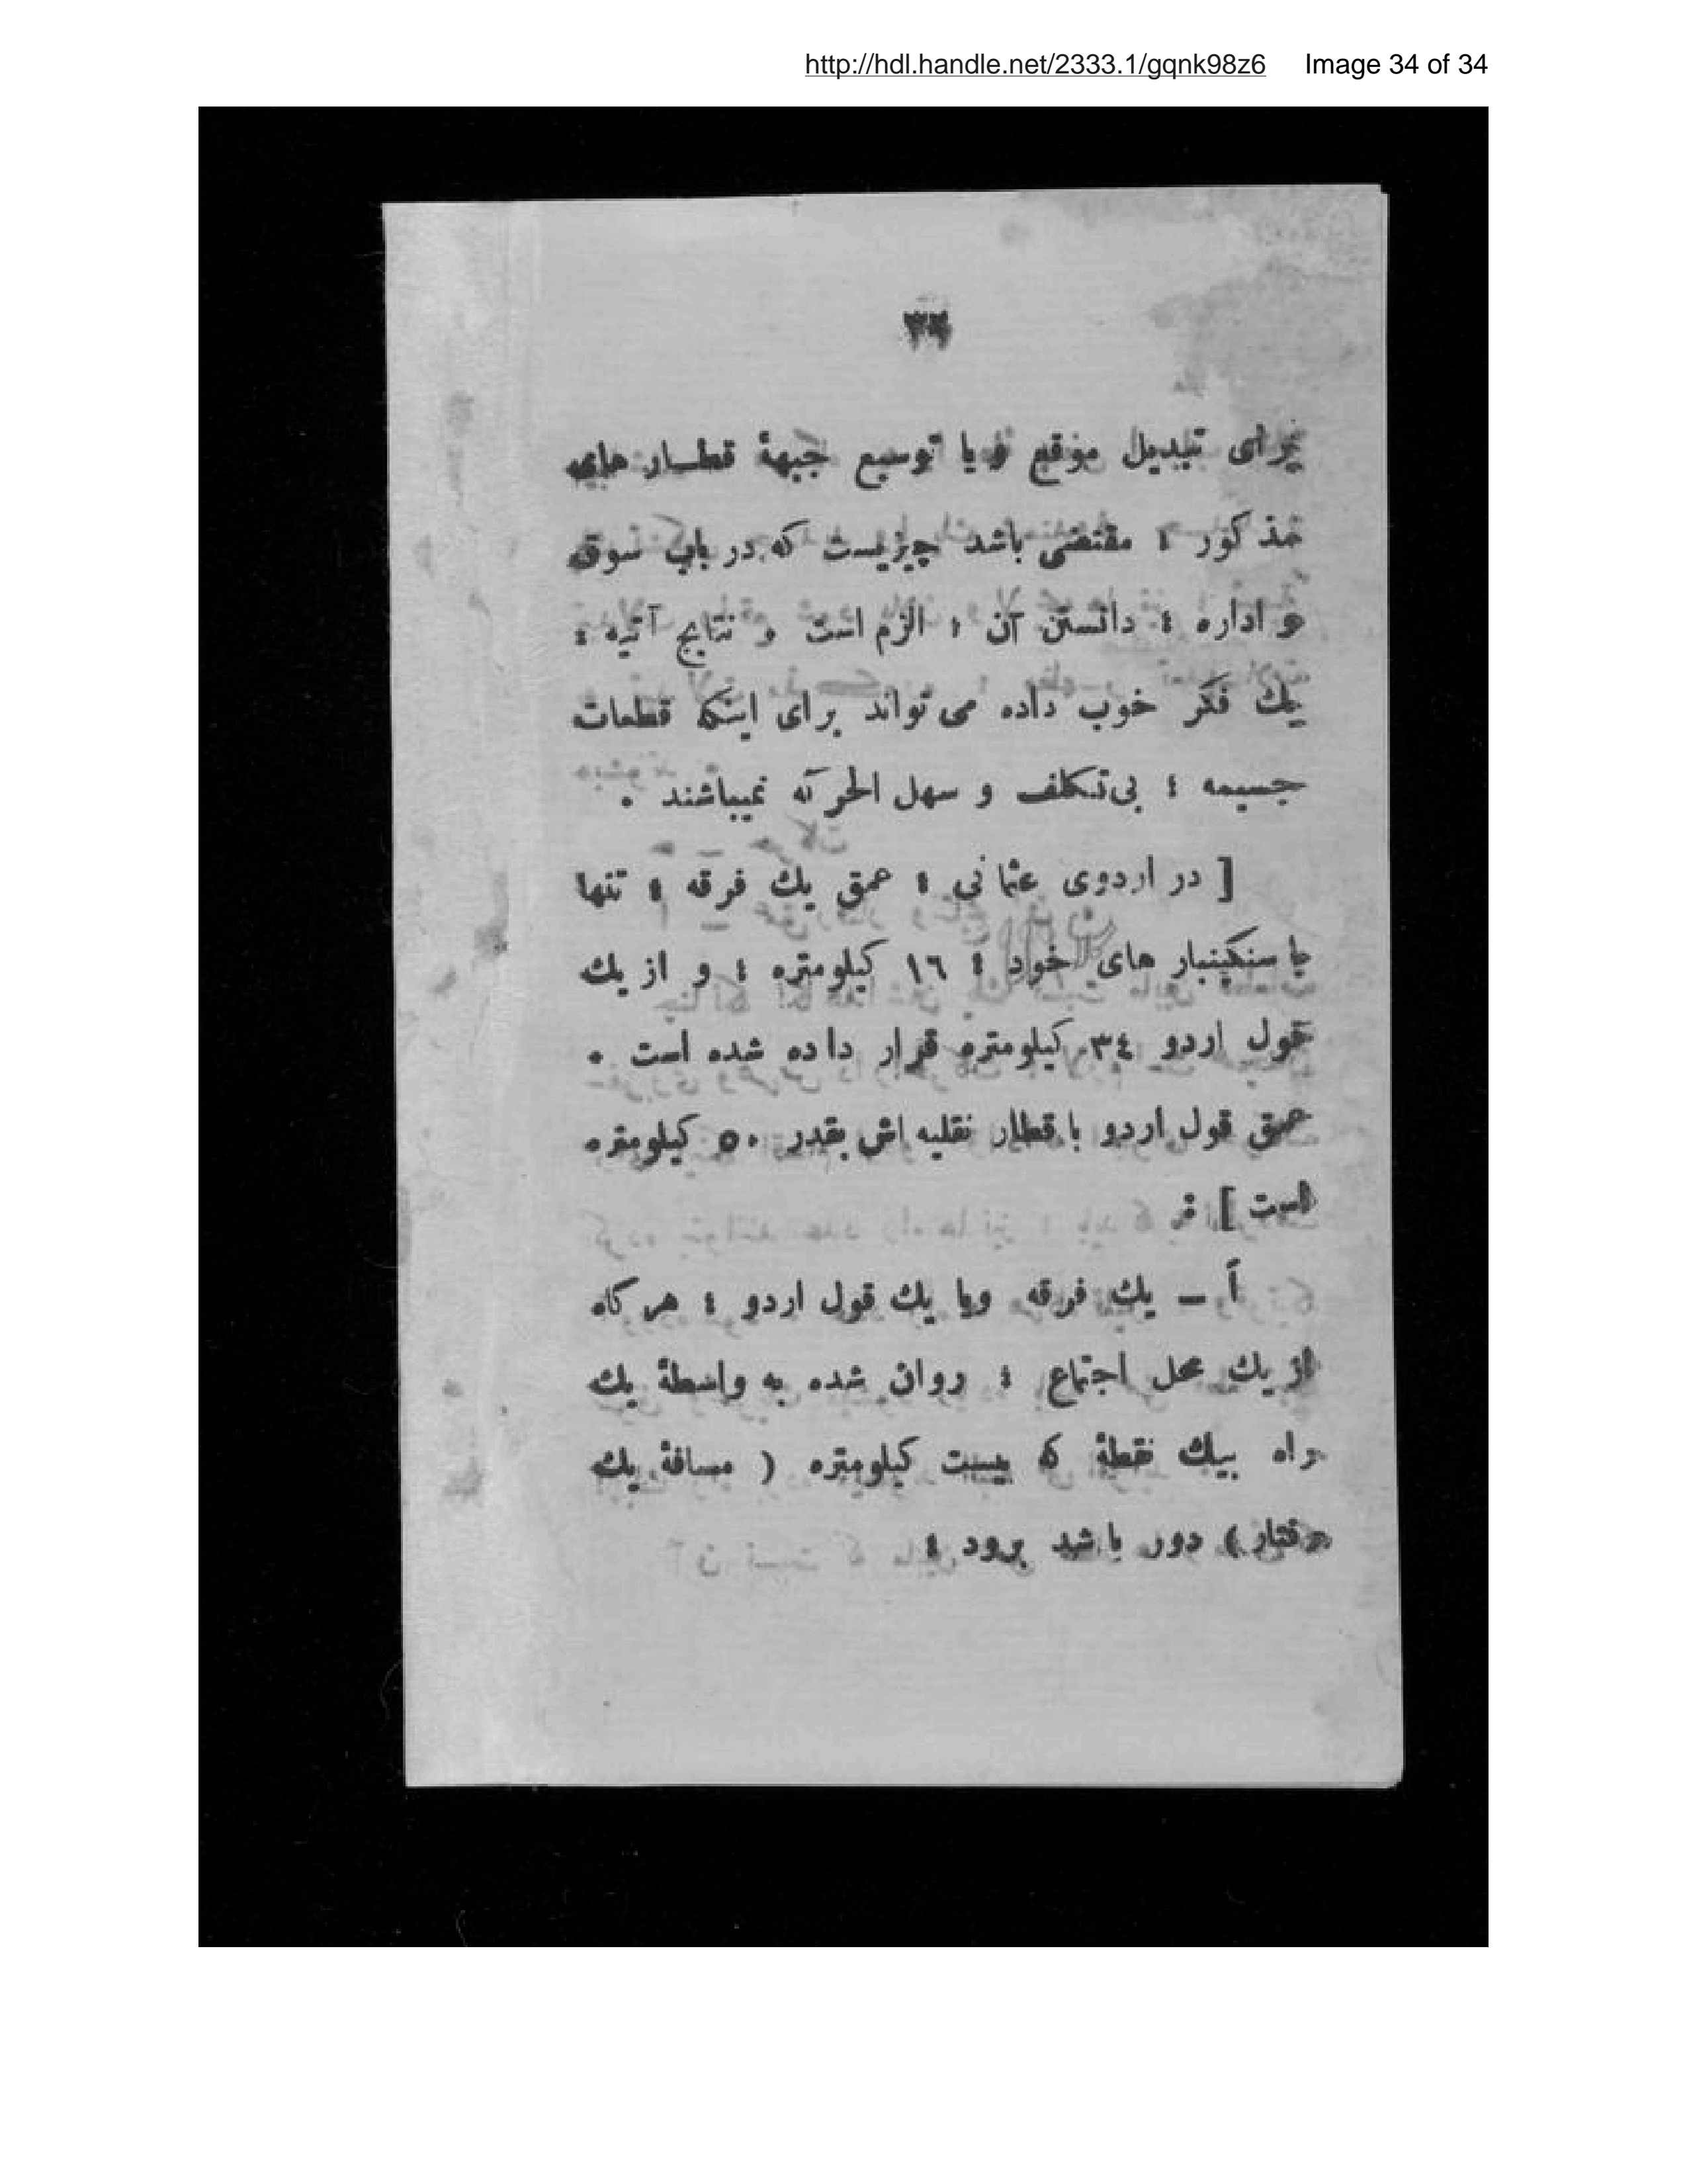 http://hdl.handle.net/2333.1/gqnk98z6 Image 34 of 34
برای تبدیل موقع و یا توسیع جبههٔ قطـار های
مذکور ؛ مقتضی باشد چیزیست که در باب سوق
و اداره ؛ دانستن آن ؛ الزم است و نتایج آتیه ؛
یك فکر خوب داده می تواند برای اینکه قطعات
جسیمه ؛ بی‌تکلف و سهل الحرکه نمیباشند .
[ در اردوی عثمانی ؛ عمق یك فرقه ؛ تنها
با سنگینبار های خود ؛ ١٦ کیلومتره ؛ و از یك
قول اردو ٣٤ کیلومتره قرار داده شده است .
عمق قول اردو با قطار نقلیه اش بقدر ٥٠ کیلومتره
است ] :
اً ــ یك فرقه ویا یك قول اردو ؛ هرگاه
از یك محل اجتماع ؛ روان شده به واسطهٔ یك
راه بیك نقطهٔ که بیست کیلومتره ( مسافهٔ یك
رفتار ) دور باشد برود ؛